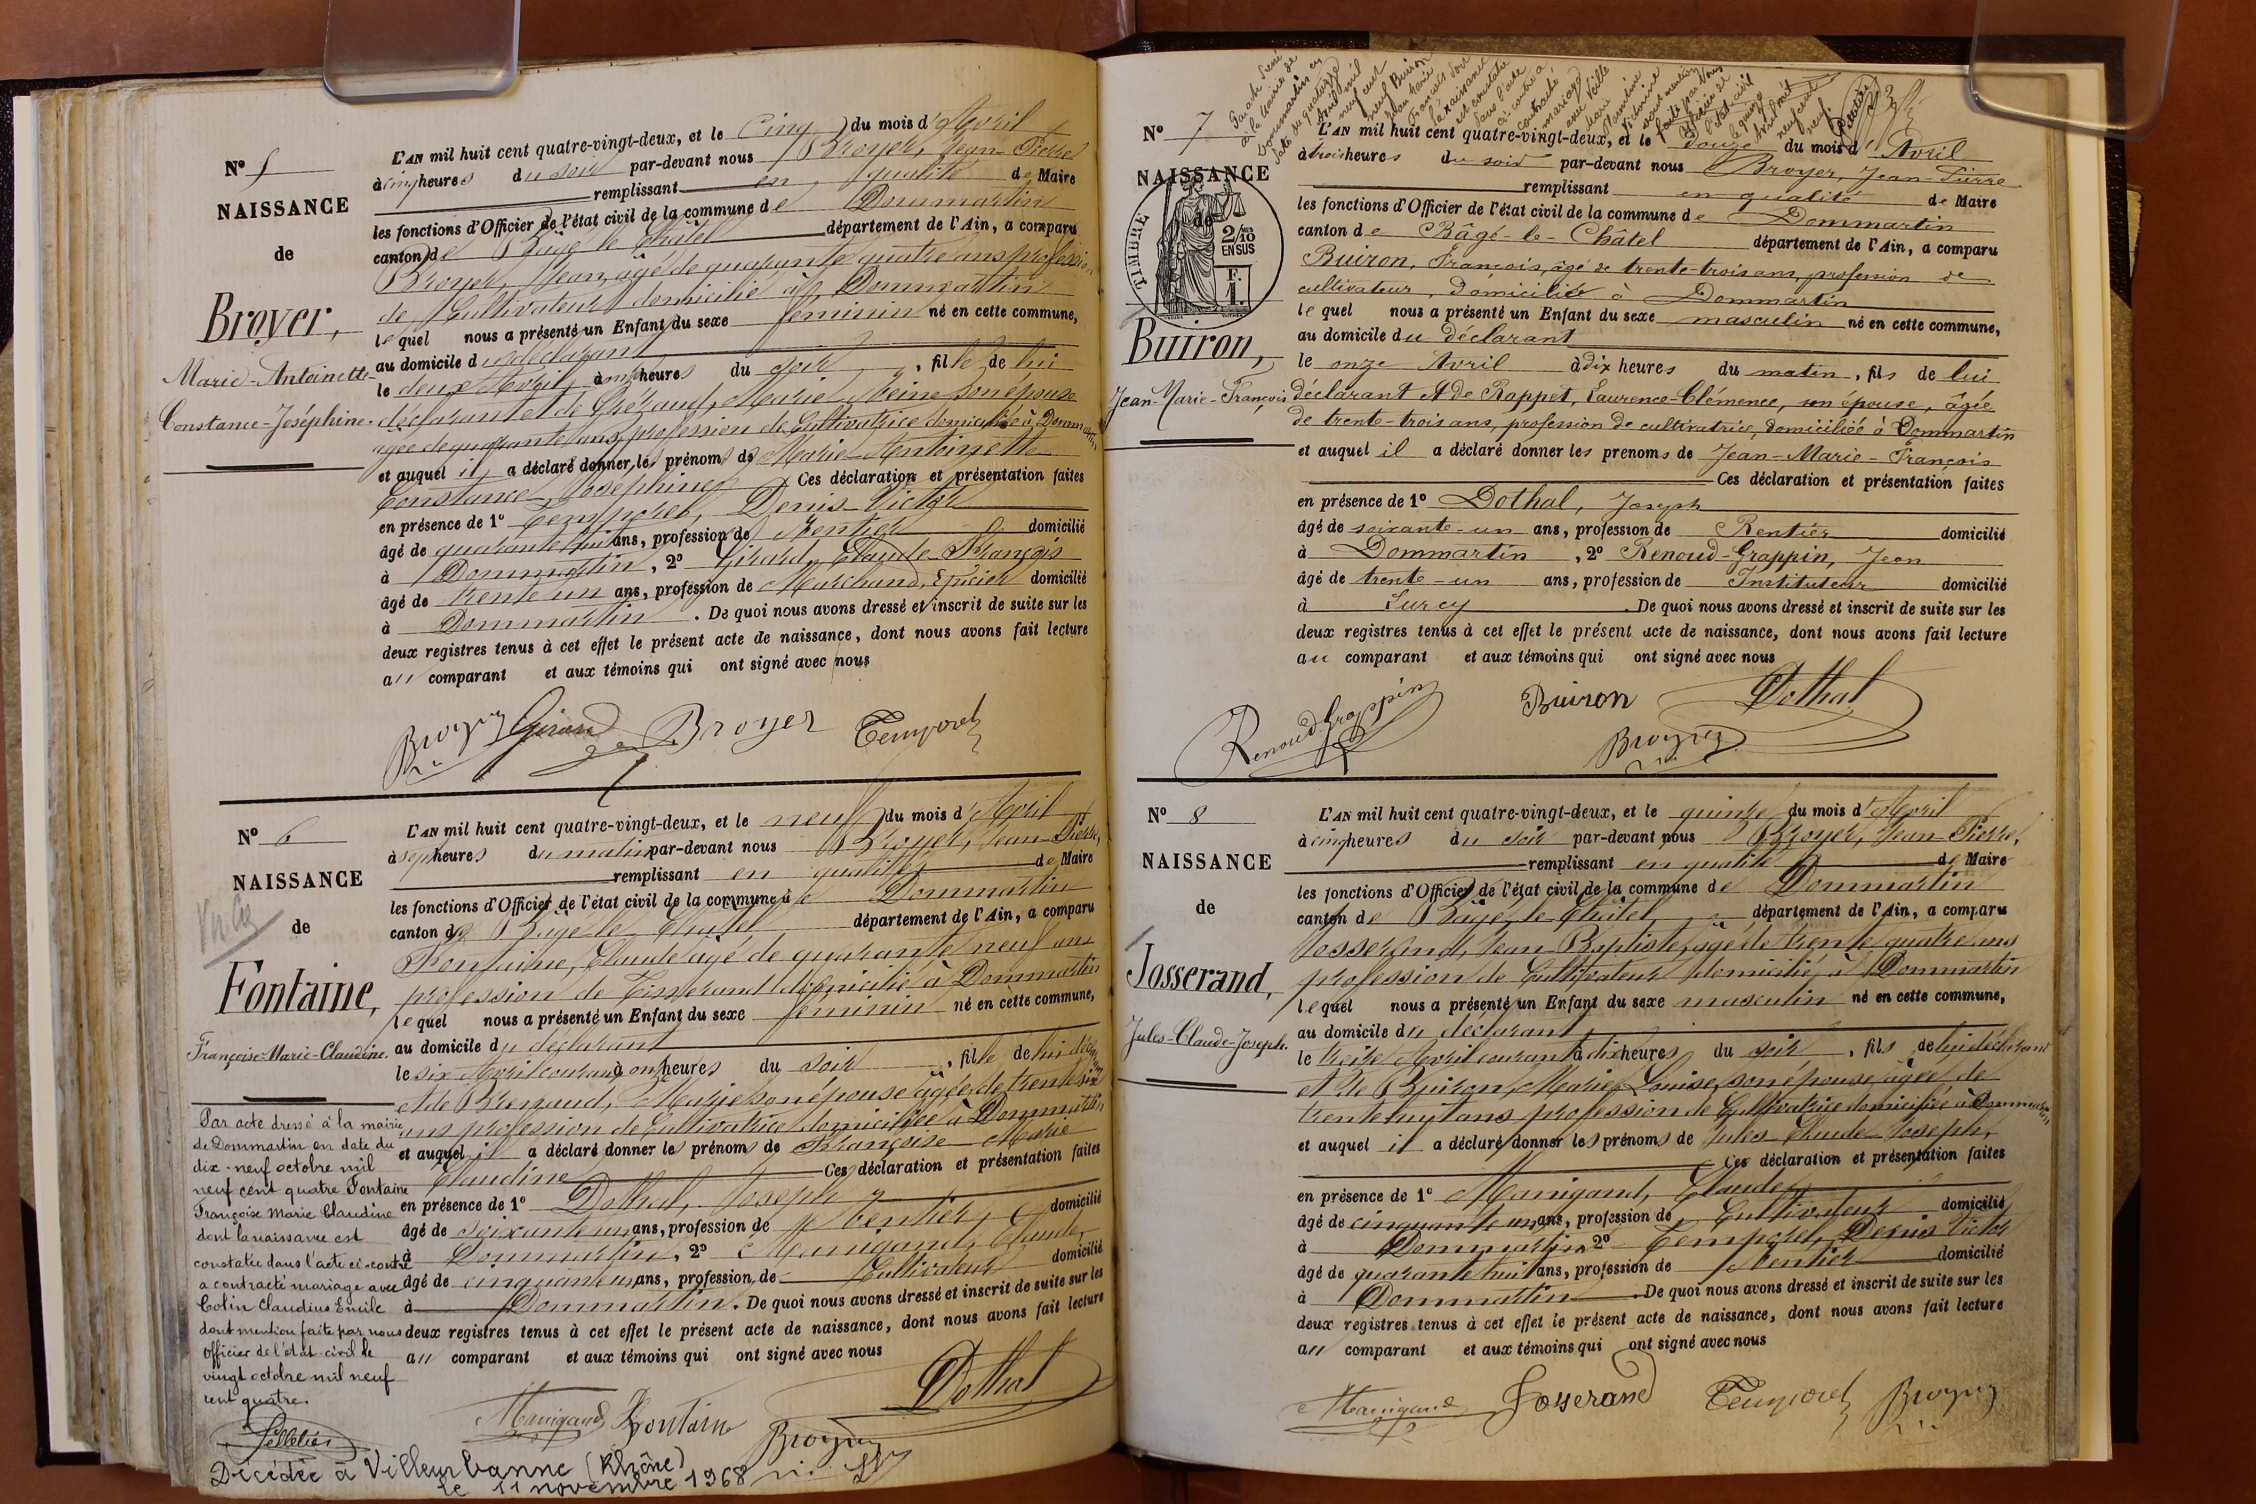 N° 5
NAISSANCE
de
Broyer,
Marie-Antoinette
Constance-Joséphine.
L'AN mil huit cent quatre-vingt-deux, et le cinq du mois d'Avril
à cinq heures du soir par-devant nous Broyer, Jean-Pierre
remplissant en qualité de Maire
les fonctions d'Officier de l'état civil de la commune de Dommartin
canton de Bâgé le Châtel département de l'Ain, a comparu
Broyer, Jean, âgé de quarante quatre ans profession
de Cultivateur domicilié à Dommartin
lequel nous a présenté un Enfant du sexe féminin né en cette commune,
au domicile du déclarant
le deux Avril, à onze heures du soir, fille de lui
déclarant et de Marie Reine son épouse
agée de quarante ans, profession de Cultivatrice domiciliée à Dommartin
et auquel il a déclaré donner les prénoms de Marie Antoinette
Constance Joséphine Ces déclaration et présentation faites
en présence de 1° Temporel, Denis Victor
âgé de quarante huit ans, profession de Rentier domicilié
à Dommartin, 2° Girard, Claude François
âgé de trente un ans, profession de Marchand Epicier domicilié
à Dommartin. De quoi nous avons dressé et inscrit de suite sur les
deux registres tenus à cet effet le présent acte de naissance, dont nous avons fait lecture
au comparant et aux témoins qui ont signé avec nous
Broyer Girard Broyer Temporel
N° 6
NAISSANCE
de
Fontaine,
Françoise-Marie-Claudine.
L'AN mil huit cent quatre-vingt-deux, et le neuf du mois d'Avril
à sept heures du matin par-devant nous Broyer, Jean-Pierre,
remplissant en qualité de Maire
les fonctions d'Officier de l'état civil de la commune de Dommartin
canton de Bâgé le Châtel département de l'Ain, a comparu
Fontaine, Claude âgé de quarante neuf ans
profession de Tisserand domicilié à Dommartin
lequel nous a présenté un Enfant du sexe féminin né en cette commune,
au domicile du déclarant
le six Avril courant à onze heures du soir, fille de lui déclarant
et de Marie son épouse âgée de trente six
ans profession de Cultivatrice domiciliée à Dommartin
et auquel il a déclaré donner les prénoms de Françoise Marie
Claudine Ces déclaration et présentation faites
en présence de 1° Dothal, Joseph
âgé de soixante un ans, profession de Rentier domicilié
à Dommartin, 2° Manigand, Claude,
âgé de cinquante un ans, profession de Cultivateur domicilié
à Dommartin. De quoi nous avons dressé et inscrit de suite sur les
deux registres tenus à cet effet le présent acte de naissance, dont nous avons fait lecture
au comparant et aux témoins qui ont signé avec nous
Manigand Fontaine Dothal
Broyer
Par acte dressé à la mairie
de Dommartin en date du
dix-neuf octobre mil
neuf cent quatre Fontaine
Françoise Marie Claudine
dont la naissance est
constatée dans l'acte ci-contre
a contracté mariage avec
Colin Claudius Emile
dont mention faite par nous
officier de l'état-civil le
vingt octobre mil neuf
cent quatre.
Pelletier
Décédée à Villeurbanne (Rhône)
le 11 novembre 1968
N° 7
NAISSANCE
de
TIMBRE
2/10 EN SUS
F. 1.
Buiron,
Jean-Marie-François
Par acte dressé
à la Mairie de
Dommartin en
date du quatorze
Avril mil
neuf cent
neuf Buiron
Jean Marie
François dont
la naissance
est constatée
dans l'acte
ci-contre a
contracté
mariage
avec
Victorine
dont mention
faite par nous
officier de
l'état civil
le quinze
avril mil
neuf cent
neuf.
L'AN mil huit cent quatre-vingt-deux, et le douze du mois d'Avril
à trois heures du soir par-devant nous Broyer, Jean-Pierre
remplissant en qualité de Maire
les fonctions d'Officier de l'état civil de la commune de Dommartin
canton de Bâgé-le-Châtel département de l'Ain, a comparu
Buiron, François, âgé de trente-trois ans, profession de
cultivateur, domicilié à Dommartin
lequel nous a présenté un Enfant du sexe masculin né en cette commune,
au domicile du déclarant
le onze Avril à dix heures du matin, fils de lui
déclarant et de Rappet, Laurence-Clémence, son épouse, âgée
de trente-trois ans, profession de cultivatrice, domiciliée à Dommartin
et auquel il a déclaré donner les prenoms de Jean-Marie-François
Ces déclaration et présentation faites
en présence de 1° Dothal, Joseph
âgé de soixante-un ans, profession de Rentier domicilié
à Dommartin, 2° Renoud-Grappin, Jean
âgé de trente-un ans, profession de Instituteur domicilié
à Lurcy. De quoi nous avons dressé et inscrit de suite sur les
deux registres tenus à cet effet le présent acte de naissance, dont nous avons fait lecture
au comparant et aux témoins qui ont signé avec nous
Renoud Grappin Buiron Dothal
Broyer
N° 8
NAISSANCE
de
Josserand,
Jules-Claude-Joseph.
L'AN mil huit cent quatre-vingt-deux, et le quinze du mois d'Avril
à cinq heures du soir par-devant nous Broyer, Jean-Pierre,
remplissant en qualité de Maire
les fonctions d'Officier de l'état civil de la commune de Dommartin
canton de Bâgé-le-Châtel, département de l'Ain, a comparu
Josserand, Jean-Baptiste, âgé de trente quatre ans
profession de Cultivateur domicilié à Dommartin
lequel nous a présenté un Enfant du sexe masculin né en cette commune,
au domicile du déclarant
le treize Avril courant à dix heures du soir, fils de lui déclarant
et de Buiron, Marie Louise, son épouse âgée de
trente huit ans profession de Cultivatrice domiciliée à Dommartin
et auquel il a déclaré donner les prénoms de Jules Claude Joseph,
Ces déclaration et présentation faites
en présence de 1° Manigand, Claude
âgé de cinquante un ans, profession de Cultivateur domicilié
à Dommartin 2° Temporel, Denis Victor
âgé de quarante huit ans, profession de Rentier domicilié
à Dommartin. De quoi nous avons dressé et inscrit de suite sur les
deux registres tenus à cet effet le présent acte de naissance, dont nous avons fait lecture
au comparant et aux témoins qui ont signé avec nous
Manigand Josserand Temporel Broyer